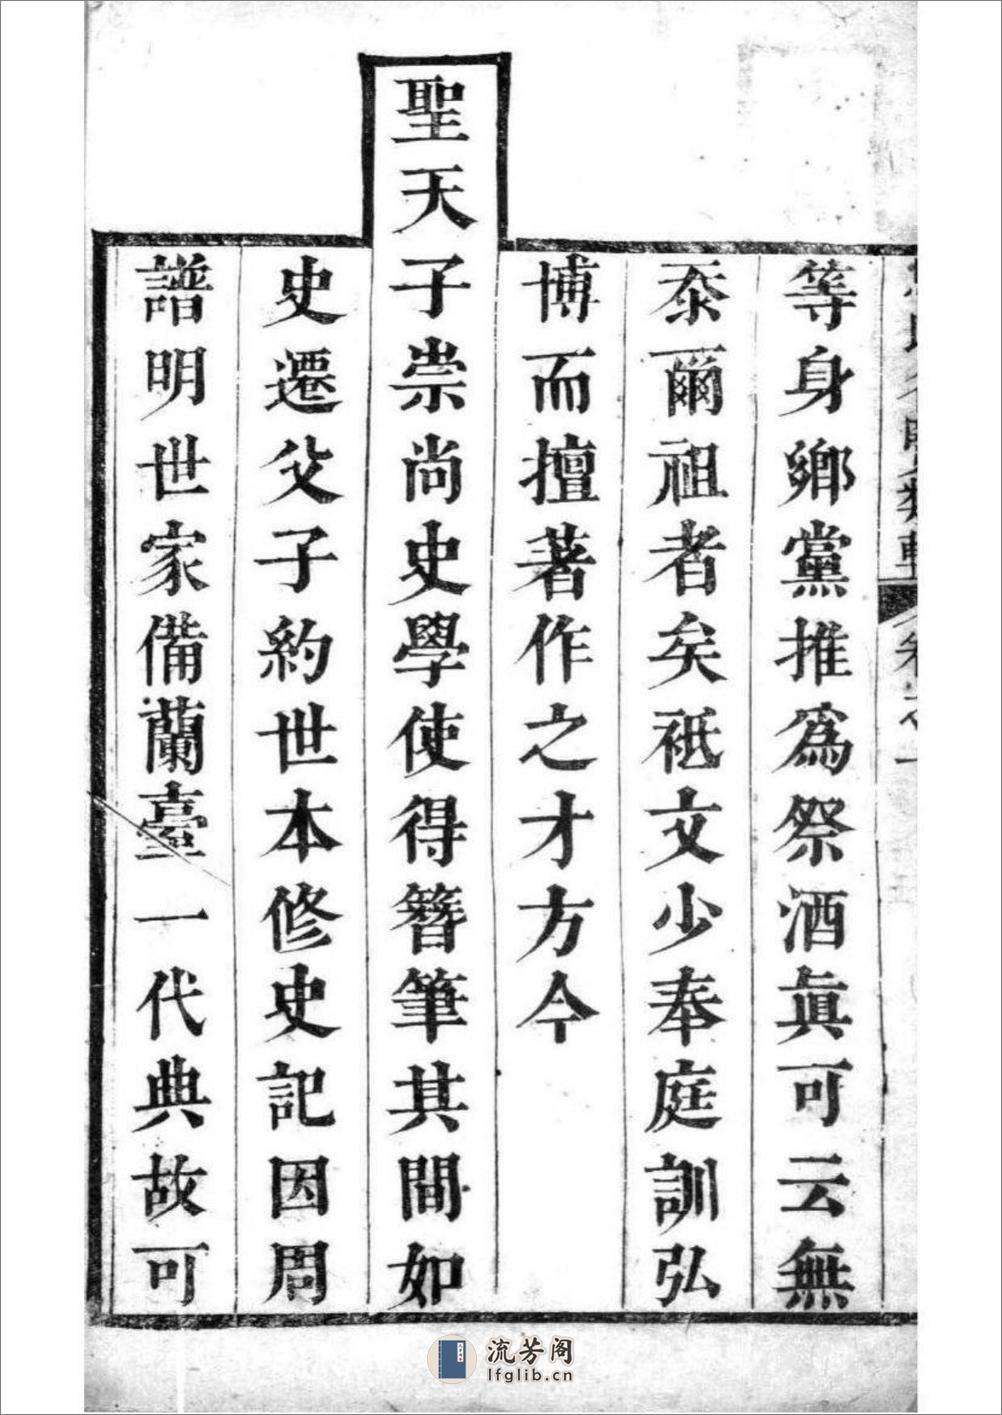 等身鄉黨推爲祭酒眞可云無
忝爾祖者矣祗文少奉庭訓弘
博而擅著作之才方今
聖天子崇尚史學使得簪筆其間如
史遷父子約世本修史記因周
譜明世家備蘭臺一代典故可
流芳阁
lfglib.cn